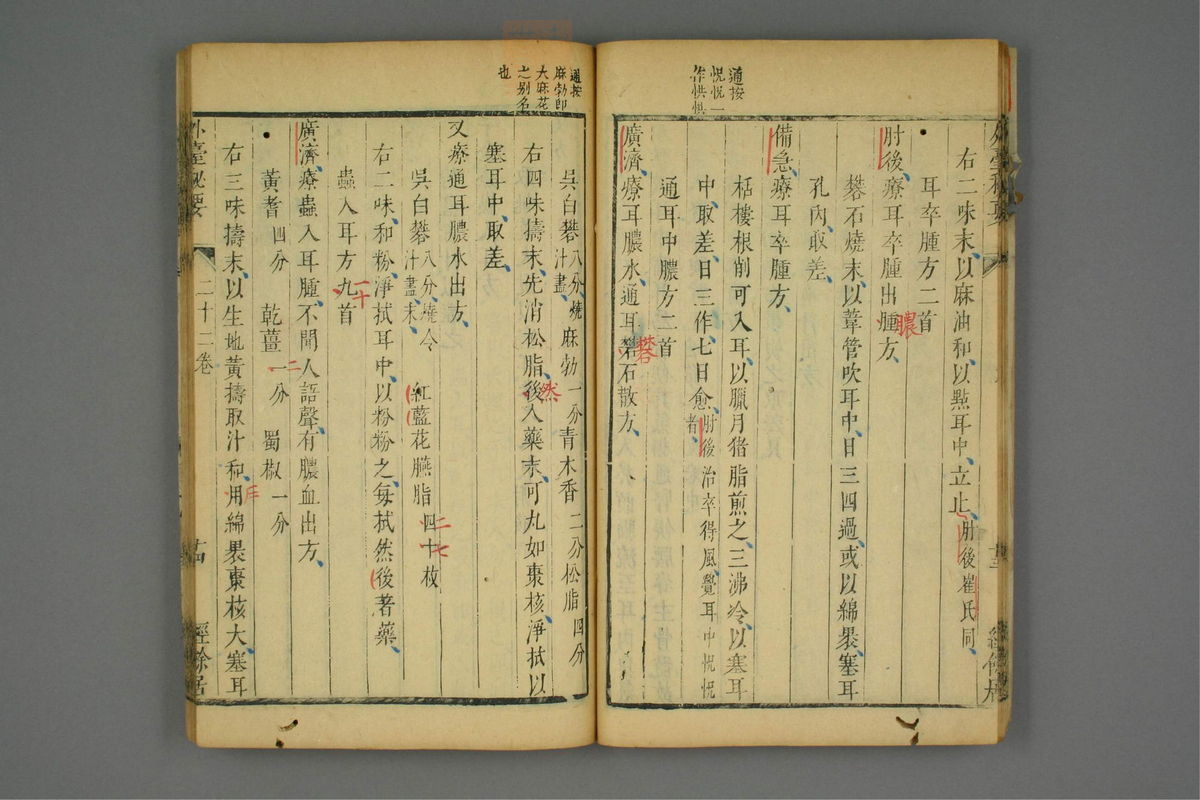 通按
怳怳一
作怏怏
右二味末以麻油和以點耳中立止肘後崔氏同
耳卒腫方二首
肘後療耳卒腫出腫方
膿
礬石燒末以葦管吹耳中日三四過或以綿褁塞耳
孔內取差
備急療耳卒腫方
栝樓根削可入耳以臘月猪脂煎之三沸冷以塞耳
中取差日三作七日愈肘後治卒得風覺耳中怳怳者
通耳中膿方二首
廣濟療耳膿水通耳礬石散方
礬
通按
麻勃即
大麻花
之别名
也
吳白礬八分燒汁盡麻勃一分青木香二分松脂四分
右四味擣末先消松脂後入藥末可丸如棗核淨拭以
然
塞耳中取差
又療通耳膿水出方
吳白礬八分燒令汁盡末 紅藍花臙脂四十枚
二七
右二味和粉淨拭耳中以粉粉之每拭然後著藥
蟲入耳方九首
一十
廣濟療蟲入耳腫不聞人語聲有膿血出方
黃耆四分 乾薑一分 蜀椒一分
二
右三味擣末以生地黃擣取汁和用綿褁棗核大塞耳
外臺秘要 二十二卷 十四 經餘居